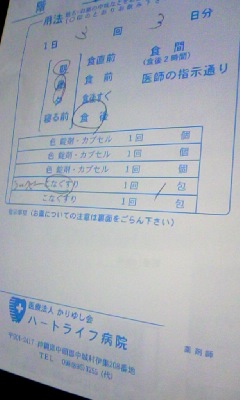 用法
1日 3 回 3 日分
朝 食直前 食間
昼 食前 (食後2時間)
夕 食後すぐ 医師の指示通り
寝る前 食後
色 錠剤・カプセル 1回 個
色 錠剤・カプセル 1回 個
こなぐすり 1回 / 包
こなぐすり 1回 包
(お薬についての注意は裏面をごらん下さい)
医療法人 かりゆし会
ハートライフ病院
沖縄県中頭郡中城村伊集208番地
TEL (代)
薬剤師